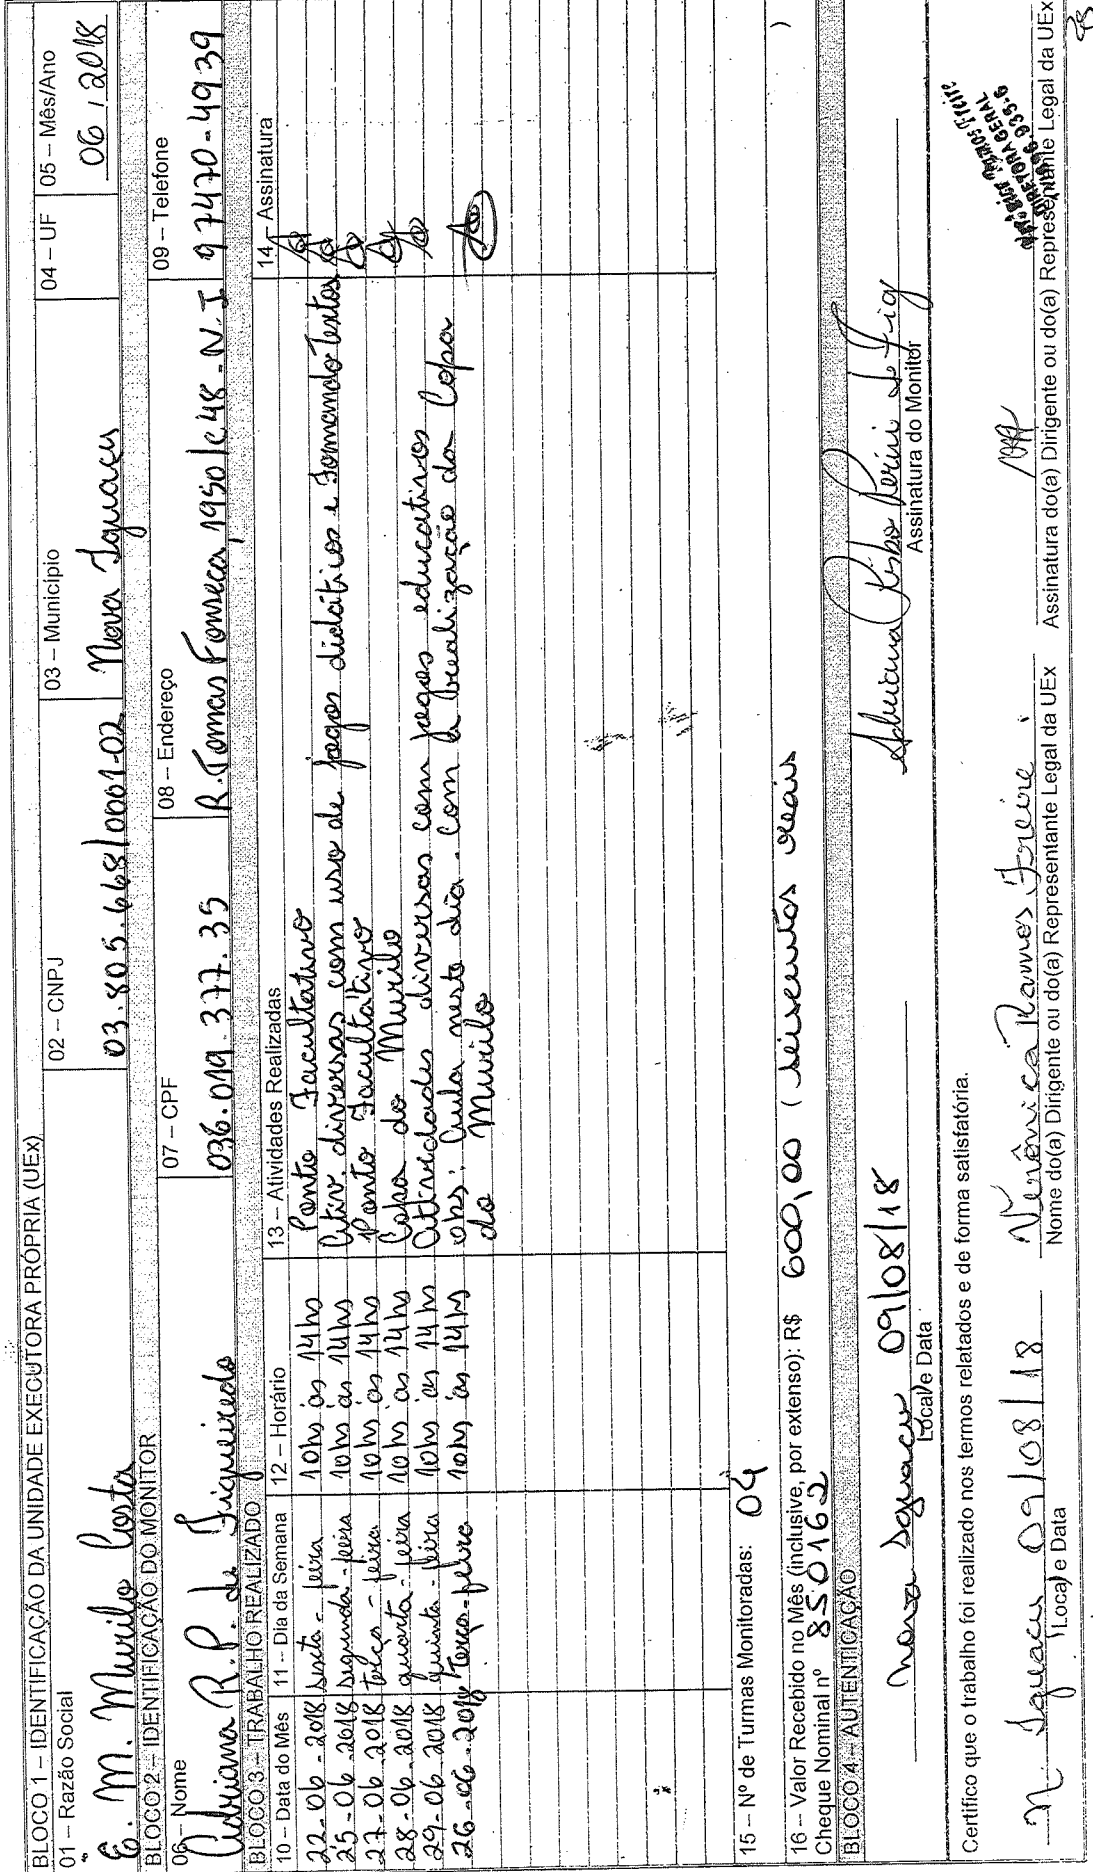 BLOCO 1 – IDENTIFICAÇÃO DA UNIDADE EXECUTORA PRÓPRIA (UEx)
01 – Razão Social 02 – CNPJ 03 – Município 04 – UF 05 – Mês/Ano
E. M. Murilo Costa 03.805.668/0001-02 Nova Iguacu 06 / 2018
BLOCO 2 – IDENTIFICAÇÃO DO MONITOR
06 – Nome 07 – CPF 08 – Endereço 09 – Telefone
Adriana R.P. de Figueiredo 036.019.377.35 R. Tomas Fonseca, 1950/c48 - N.I 97470-4939
BLOCO 3 – TRABALHO REALIZADO
10 – Data do Mês 11 – Dia da Semana 12 – Horário 13 – Atividades Realizadas 14 – Assinatura
22-06-2018 sexta-feira 10hs às 14hs Ponto Facultativo
25-06-2018 segunda-feira 10hs às 14hs Ativ. diversas com uso de jogos didáticos e Formando Textos
27-06-2018 terça-feira 10hs às 14hs Ponto Facultativo
28-06-2018 quarta-feira 10hs às 14hs Copa do Murilo
29-06-2018 quinta-feira 10hs às 14hs Atividades diversas com jogos educativos
26-06-2018 terça-feira 10hs às 14hs obs: Aula neste dia. com a realização da Copa
do Murilo
15 – Nº de Turmas Monitoradas: 04
16 – Valor Recebido no Mês (inclusive, por extenso): R$ 600,00 ( seiscentos reais )
Cheque Nominal nº 850162
BLOCO 4 – AUTENTICAÇÃO
Nova Iguacu 09/08/18
Local e Data Assinatura do Monitor
Certifico que o trabalho foi realizado nos termos relatados e de forma satisfatória.
N Iguacu 09/08/18 Verônica Ramos Freire
DIRETORA GERAL
Local e Data Nome do(a) Dirigente ou do(a) Representante Legal da UEx Assinatura do(a) Dirigente ou do(a) Representante Legal da UEx